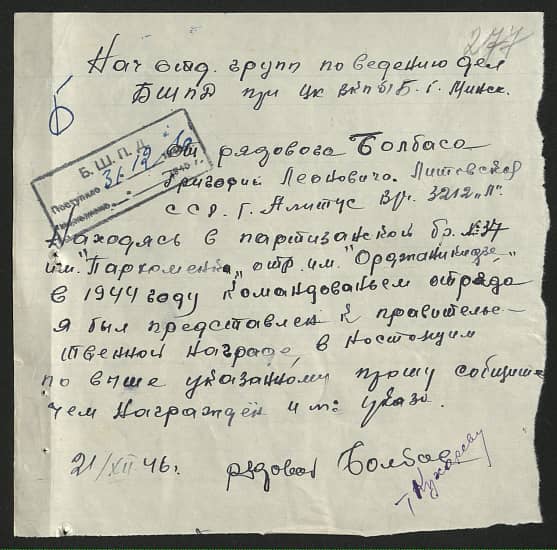 277
Нач отд. групп по ведению дел
БШПД при цк вкп(б)Б. г. Минск.
Б
Б. Ш. П. Д.
Поступило 31-12
194 г.
от рядового Болбаса
Григорий Леоновича. Литовская
ССР. г. Алитус в/ч. 3212 "Л".
Находясь в партизанской бр. №37
им. "Пархоменко" отр. им. "Орджаникидзе"
в 1944 году командованьем отряда
я был представлен к правительс-
твенной награде, в ностоящим
по выше указанному прошу собщить
чем награждён и № указа.
21/XII 46г. рядовой Болбас
т Кухареву